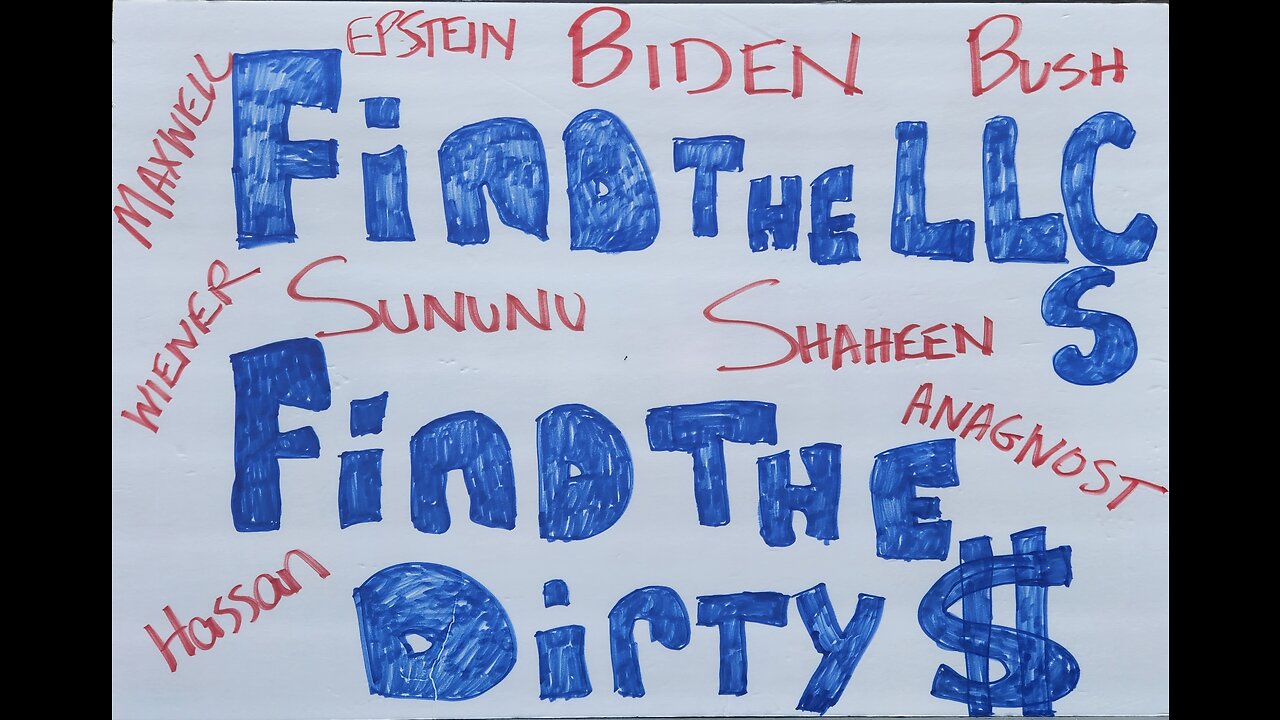 EPSTEIN BIDEN BUSH
MAXWELL
FinD THE LLC
S
WIENER SUNUNU SHAHEEN
ANAGNOST
FinD THE
Hassan
DirTY $